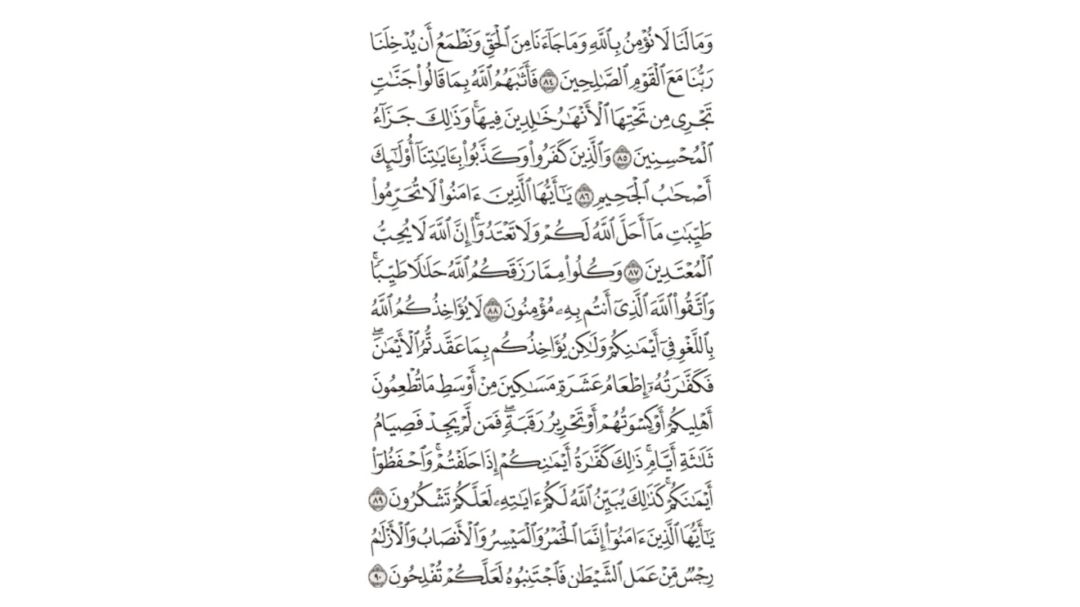 وَمَا لَنَا لَا نُؤْمِنُ بِٱللَّهِ وَمَا جَآءَنَا مِنَ ٱلْحَقِّ وَنَطْمَعُ أَن يُدْخِلَنَا
رَبُّنَا مَعَ ٱلْقَوْمِ ٱلصَّٰلِحِينَ ٨٤ فَأَثَٰبَهُمُ ٱللَّهُ بِمَا قَالُوا۟ جَنَّٰتٍ
تَجْرِى مِن تَحْتِهَا ٱلْأَنْهَٰرُ خَٰلِدِينَ فِيهَا ۚ وَذَٰلِكَ جَزَآءُ
ٱلْمُحْسِنِينَ ٨٥ وَٱلَّذِينَ كَفَرُوا۟ وَكَذَّبُوا۟ بِـَٔايَٰتِنَآ أُو۟لَٰٓئِكَ
أَصْحَٰبُ ٱلْجَحِيمِ ٨٦ يَٰٓأَيُّهَا ٱلَّذِينَ ءَامَنُوا۟ لَا تُحَرِّمُوا۟
طَيِّبَٰتِ مَآ أَحَلَّ ٱللَّهُ لَكُمْ وَلَا تَعْتَدُوٓا۟ ۚ إِنَّ ٱللَّهَ لَا يُحِبُّ
ٱلْمُعْتَدِينَ ٨٧ وَكُلُوا۟ مِمَّا رَزَقَكُمُ ٱللَّهُ حَلَٰلًا طَيِّبًا ۚ
وَٱتَّقُوا۟ ٱللَّهَ ٱلَّذِىٓ أَنتُم بِهِۦ مُؤْمِنُونَ ٨٨ لَا يُؤَاخِذُكُمُ ٱللَّهُ
بِٱللَّغْوِ فِىٓ أَيْمَٰنِكُمْ وَلَٰكِن يُؤَاخِذُكُم بِمَا عَقَّدتُّمُ ٱلْأَيْمَٰنَ ۖ
فَكَفَّٰرَتُهُۥٓ إِطْعَامُ عَشَرَةِ مَسَٰكِينَ مِنْ أَوْسَطِ مَا تُطْعِمُونَ
أَهْلِيكُمْ أَوْ كِسْوَتُهُمْ أَوْ تَحْرِيرُ رَقَبَةٍ ۖ فَمَن لَّمْ يَجِدْ فَصِيَامُ
ثَلَٰثَةِ أَيَّامٍ ۚ ذَٰلِكَ كَفَّٰرَةُ أَيْمَٰنِكُمْ إِذَا حَلَفْتُمْ ۚ وَٱحْفَظُوٓا۟
أَيْمَٰنَكُمْ ۚ كَذَٰلِكَ يُبَيِّنُ ٱللَّهُ لَكُمْ ءَايَٰتِهِۦ لَعَلَّكُمْ تَشْكُرُونَ ٨٩
يَٰٓأَيُّهَا ٱلَّذِينَ ءَامَنُوٓا۟ إِنَّمَا ٱلْخَمْرُ وَٱلْمَيْسِرُ وَٱلْأَنصَابُ وَٱلْأَزْلَٰمُ
رِجْسٌ مِّنْ عَمَلِ ٱلشَّيْطَٰنِ فَٱجْتَنِبُوهُ لَعَلَّكُمْ تُفْلِحُونَ ٩٠